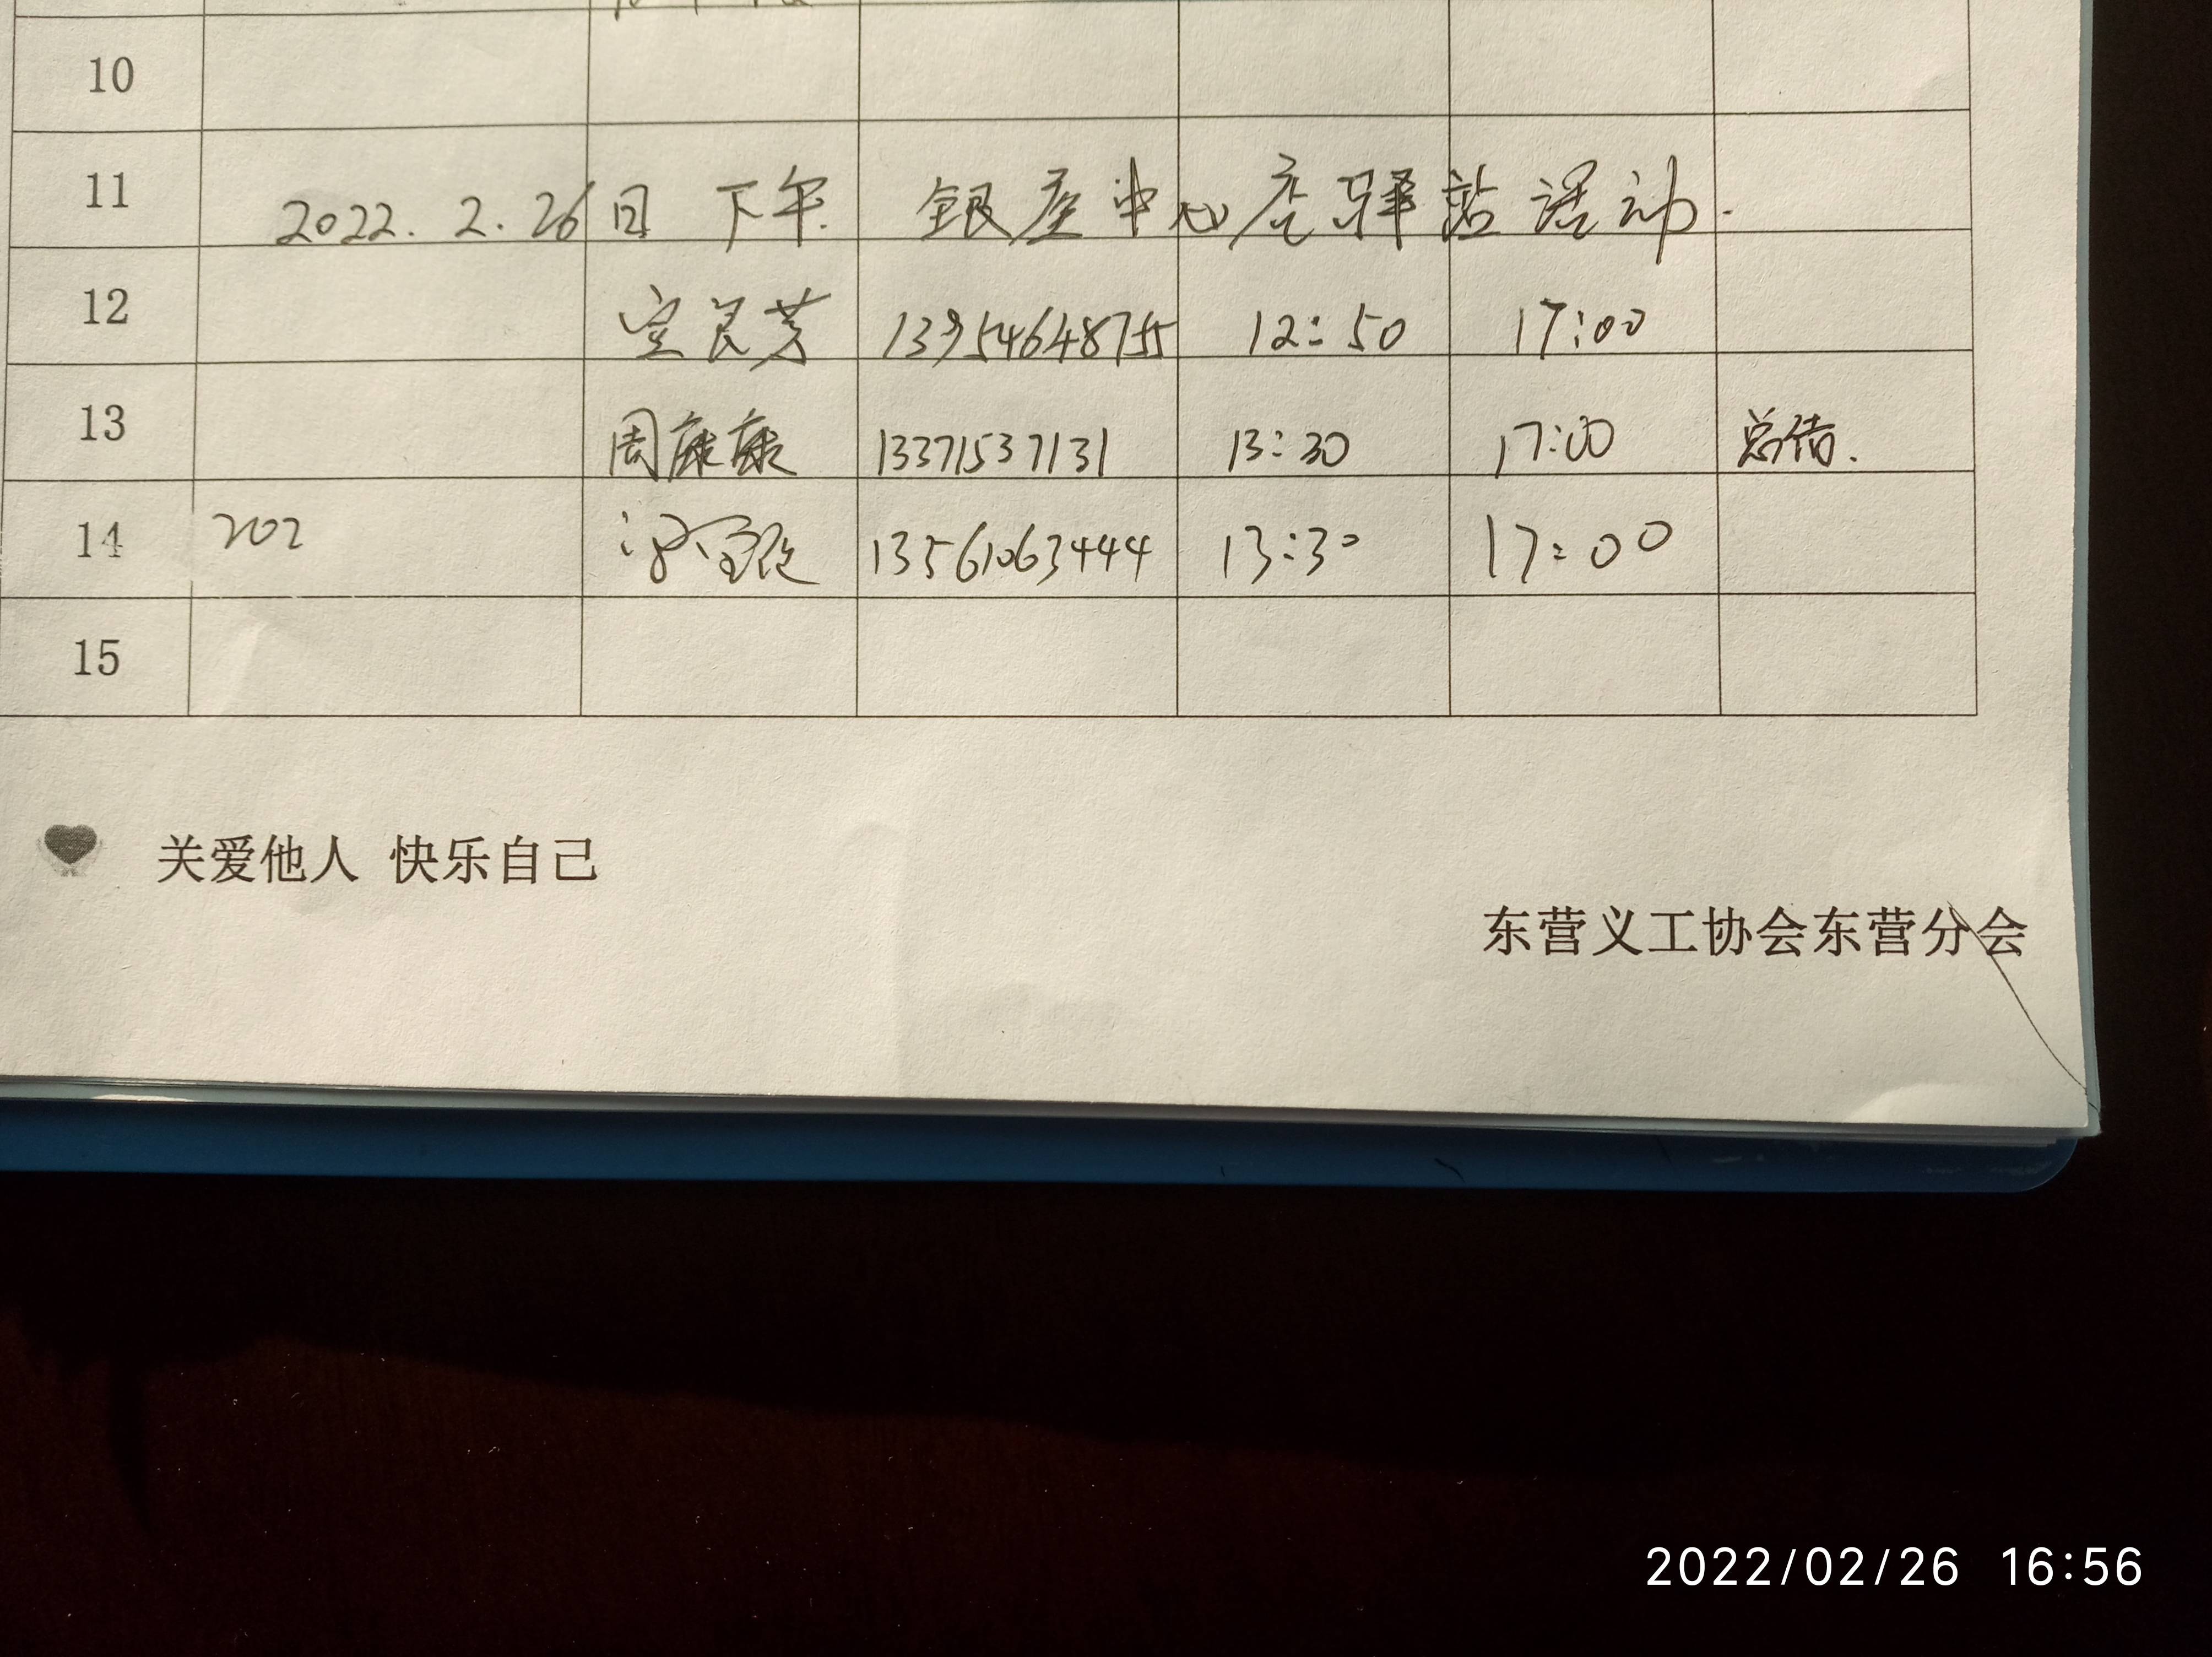 10
11 2022.2.26日 下午. 银座中心店驿站活动.
12 13954648755 12:50 17:00
13 周康康 13371537131 13:30 17:00 总结.
14 202 13561063444 13:30 17:00
15
关爱他人 快乐自己
东营义工协会东营分会
2022/02/26 16:56